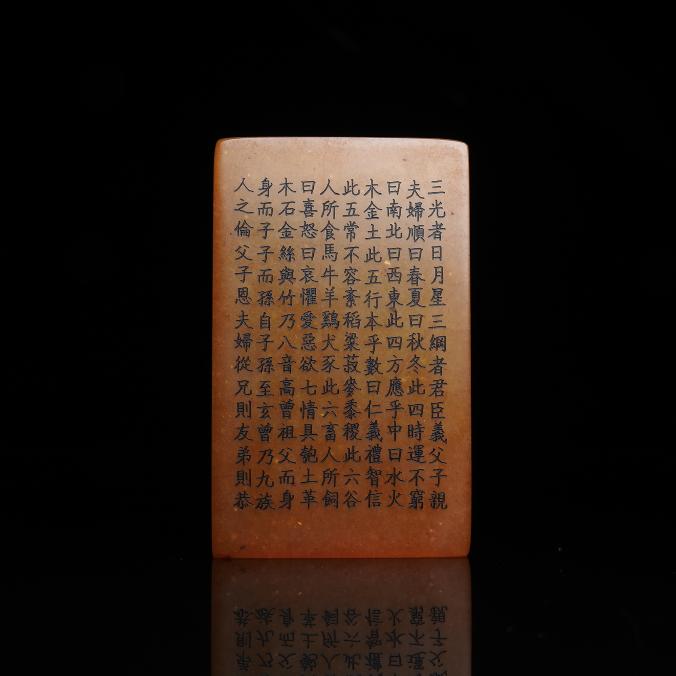 三光者日月星三綱者君臣義父子親
夫婦順曰春夏曰秋冬此四時運不窮
曰南北曰西東此四方應乎中曰水火
木金土此五行本乎數曰仁義禮智信
此五常不容紊稻粱菽麥黍稷此六谷
人所食馬牛羊鷄犬豕此六畜人所飼
曰喜怒曰哀懼愛惡欲七情具匏土革
木石金絲與竹乃八音高曾祖父而身
身而子子而孫自子孫至玄曾乃九族
人之倫父子恩夫婦從兄則友弟則恭